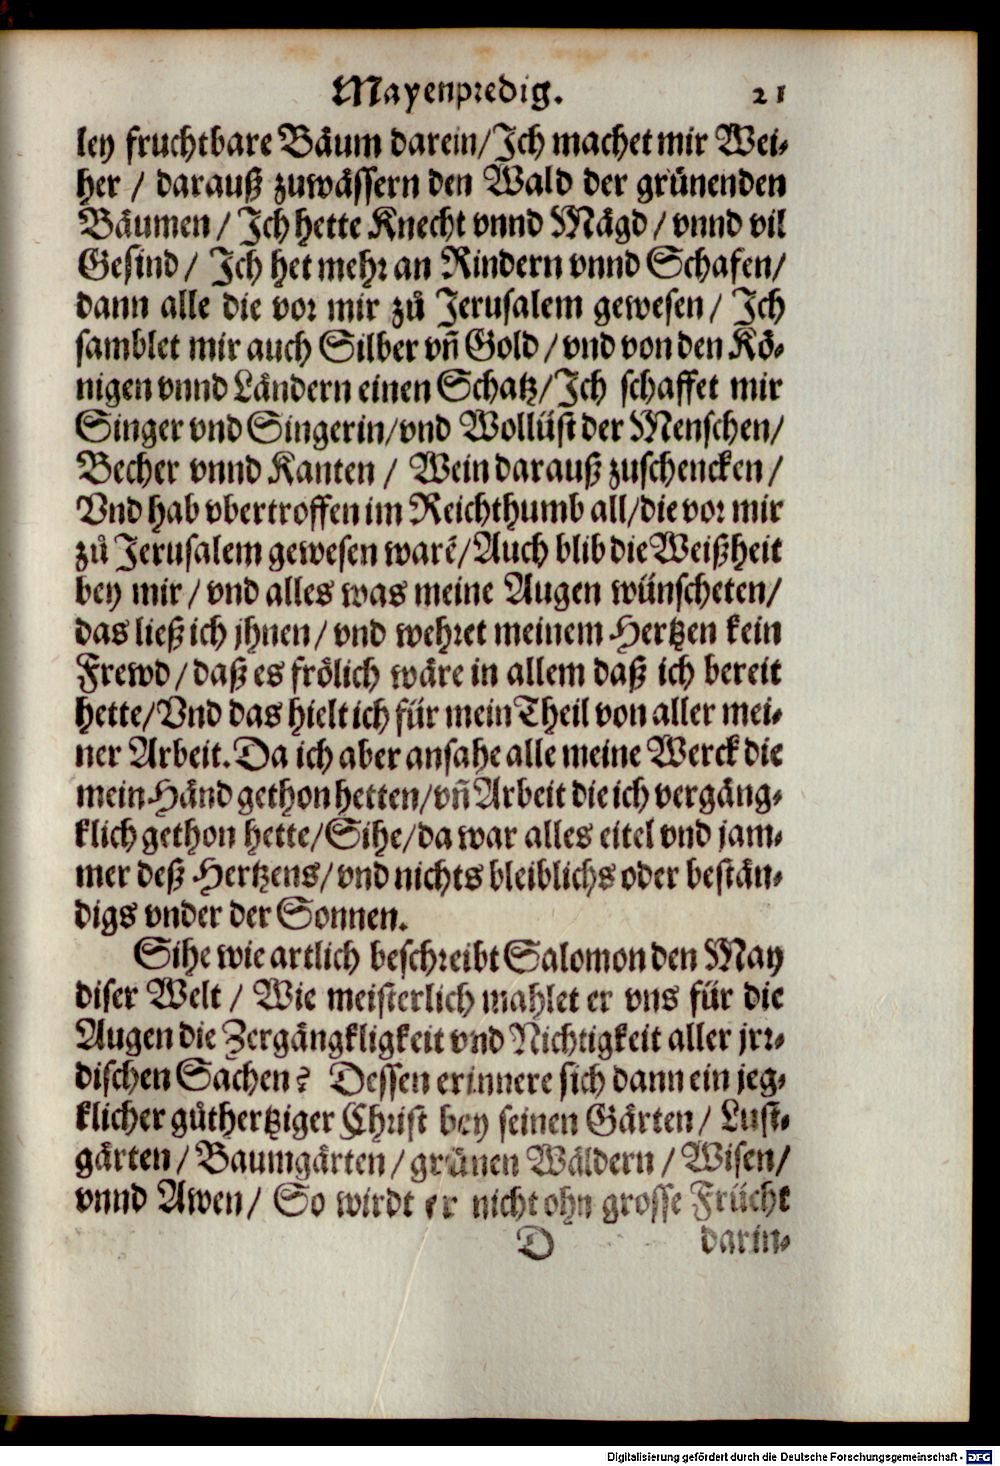 Mayenpredig. 21
ley fruchtbare Bäum darein/ Ich machet mir Wei-
her / darauß zuwässern den Wald der grünenden
Bäumen / Ich hette Knecht vnnd Mägd / vnnd vil
Gesind / Ich het mehr an Rindern vnnd Schafen/
dann alle die vor mir zů Jerusalem gewesen / Ich
samblet mir auch Silber vñ Gold / vnd von den Kö-
nigen vnnd Ländern einen Schatz/ Ich schaffet mir
Singer vnd Singerin/vnd Wollüst der Menschen/
Becher vnnd Kanten / Wein darauß zuschencken /
Vnd hab vbertroffen im Reichthumb all/die vor mir
zů Jerusalem gewesen warẽ/ Auch blib die Weißheit
bey mir / vnd alles was meine Augen wünscheten/
das ließ ich jhnen / vnd wehret meinem Hertzen kein
Frewd / daß es frölich wäre in allem daß ich bereit
hette/Vnd das hielt ich für mein Theil von aller mei-
ner Arbeit. Da ich aber ansahe alle meine Werck die
mein Händ gethon hetten/vñ Arbeit die ich vergäng-
klich gethon hette/Sihe/da war alles eitel vnd jam-
mer deß Hertzens/ vnd nichts bleiblichs oder bestän-
digs vnder der Sonnen.
Sihe wie artlich beschreibt Salomon den May
diser Welt / Wie meisterlich mahlet er vns für die
Augen die Zergängkligkeit vnd Nichtigkeit aller jrr-
dischen Sachen? Dessen erinnere sich dann ein jeg-
klicher gůthertziger Christ bey seinen Gärten / Lust-
gärten / Baumgärten / grünen Wäldern / Wisen/
vnnd Awen/ So wirdt er nicht ohn grosse Frücht
D darin-
Digitalisierung gefördert durch die Deutsche Forschungsgemeinschaft - DFG